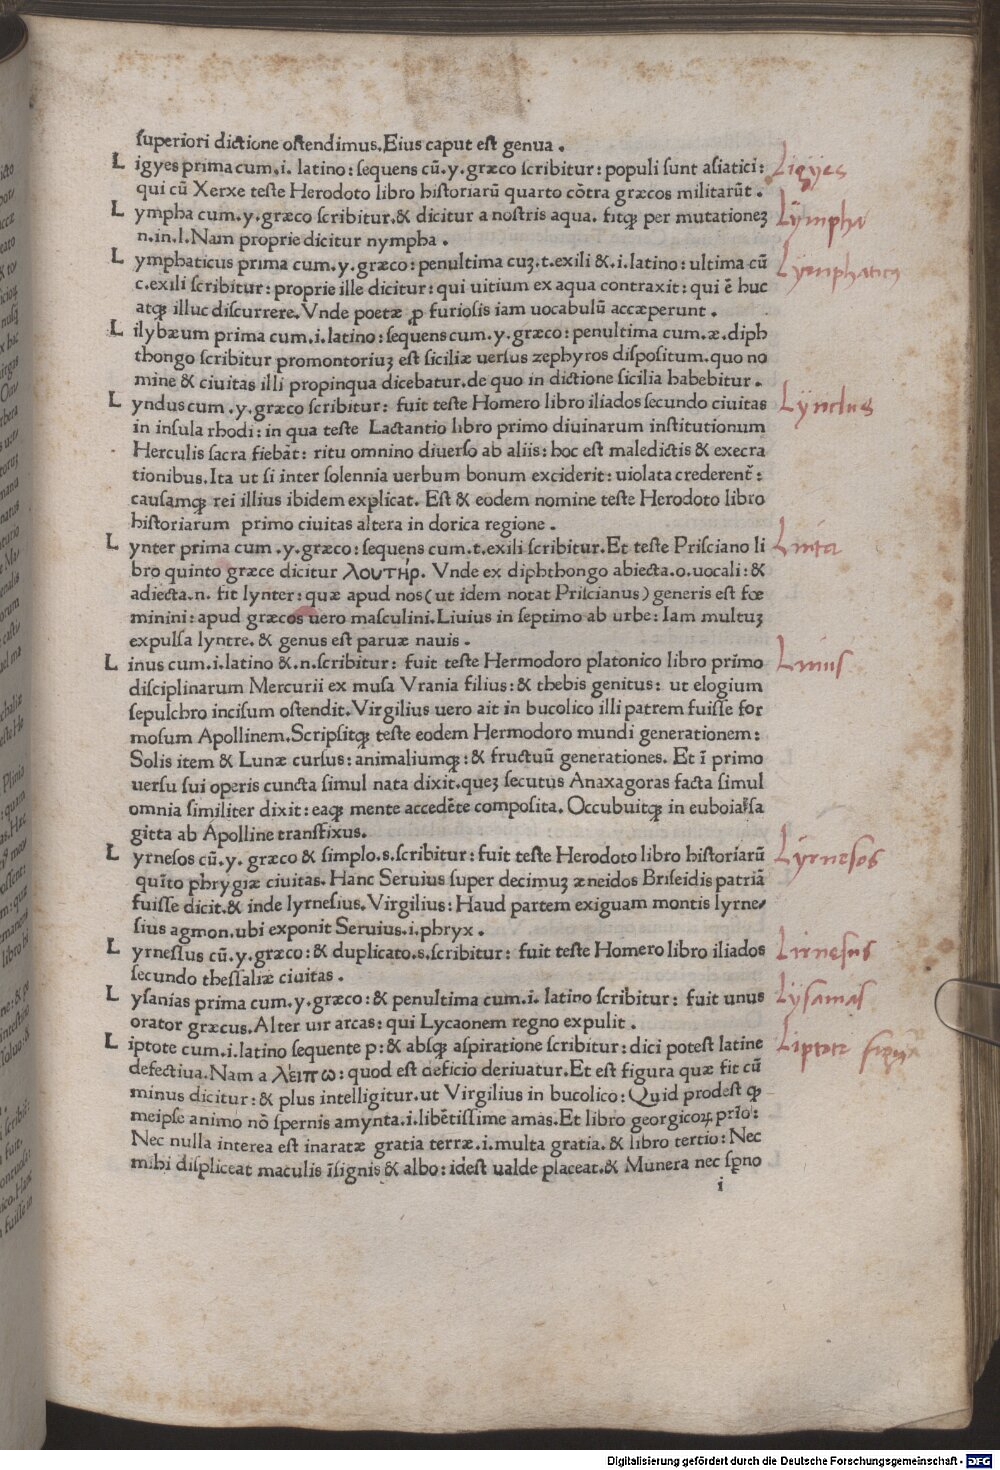 superiori dictione ostendimus.Eius caput est genua .
L igyes prima cum.i. latino: sequens cū.y.græco scribitur: populi sunt asiatici:
qui cū Xerxe teste Herodoto libro historiarū quarto cōtra græcos militarūt .
L ympha cum.y.græco scribitur.& dicitur a nostris aqua. fitqꝫ per mutationeꝫ
n.in.l.Nam proprie dicitur nympha .
L ymphaticus prima cum.y.græco: penultima cuꝫ.t.exili &.i.latino: ultima cū
c.exili scribitur: proprie ille dicitur: qui uitium ex aqua contraxit: qui ē huc
atqꝫ illuc discurrere.Vnde poetæ ꝓ furiosis iam uocabulū accæperunt .
L ilybæum prima cum.i.latino: sequens cum.y.græco: penultima cum.æ.diph
thongo scribitur promontoriuꝫ est siciliæ uersus zephyros dispositum.quo no
mine & ciuitas illi propinqua dicebatur.de quo in dictione sicilia habebitur .
L yndus cum .y.græco scribitur: fuit teste Homero libro iliados secundo ciuitas
in insula rhodi: in qua teste Lactantio libro primo diuinarum institutionum
Herculis sacra fiebāt: ritu omnino diuerso ab aliis: hoc est maledictis & execra
tionibus.Ita ut si inter solennia uerbum bonum exciderit: uiolata crederent̄:
causamqꝫ rei illius ibidem explicat. Est & eodem nomine teste Herodoto libro
historiarum primo ciuitas altera in dorica regione .
L ynter prima cum .y.græco: sequens cum.t.exili scribitur.Et teste Prisciano li
bro quinto græce dicitur λουτήρ. Vnde ex diphthongo abiecta.o.uocali: &
adiecta.n. fit lynter: quæ apud nos( ut idem notat Priscianus ) generis est fœ
minini: apud græcos uero masculini. Liuius in septimo ab urbe: Iam multuꝫ
expulsa lyntre. & genus est paruæ nauis .
L inus cum.i.latino &.n.scribitur: fuit teste Hermodoro platonico libro primo
disciplinarum Mercurii ex musa Vrania filius: & thebis genitus: ut elogium
sepulchro incisum ostendit.Virgilius uero ait in bucolico illi patrem fuisse for
mosum Apollinem.Scripsitqꝫ teste eodem Hermodoro mundi generationem:
Solis item & Lunæ cursus: animaliumqꝫ: & fructuū generationes. Et ī primo
uersu sui operis cuncta simul nata dixit.queꝫ secutus Anaxagoras facta simul
omnia similiter dixit: eaqꝫ mente accedēte composita. Occubuitqꝫ in euboia sa
gitta ab Apolline transfixus.
L yrnesos cū.y. græco & simplo.s.scribitur: fuit teste Herodoto libro historiarū
quīto phrygiæ ciuitas. Hanc Seruius super decimuꝫ æneidos Briseidis patriā
fuisse dicit.& inde lyrnesius. Virgilius: Haud partem exiguam montis lyrne/
sius agmon.ubi exponit Seruius.i.phryx .
L yrnessus cū.y.græco: & duplicato.s.scribitur: fuit teste Homero libro iliados
secundo thessaliæ ciuitas .
L ysanias prima cum.y.græco: & penultima cum.i. latino scribitur: fuit unus
orator græcus.Alter uir arcas: qui Lycaonem regno expulit .
L iptote cum.i.latino sequente p: & absqꝫ aspiratione scribitur: dici potest latine
defectiua.Nam a λειπω: quod est deficio deriuatur.Et est figura quæ fit cū
minus dicitur: & plus intelligitur.ut Virgilius in bucolico: Quid prodest qꝫ
meipse animo nō spernis amynta.i.libētissime amas.Et libro georgicoꝝ prīo:
Nec nulla interea est inaratæ gratia terræ.i.multa gratia. & libro tertio: Nec
mihi displiceat maculis īsignis & albo: idest ualde placeat.& Munera nec sꝑno
i
Ligyes
Lÿmpha
Lÿmphaticus
Lÿndus
Linter
Linus
Lyrnesos
Lirnesus
Lÿsanias
Liptote figura
Digitalisierung gefördert durch die Deutsche Forschungsgemeinschaft - DFG